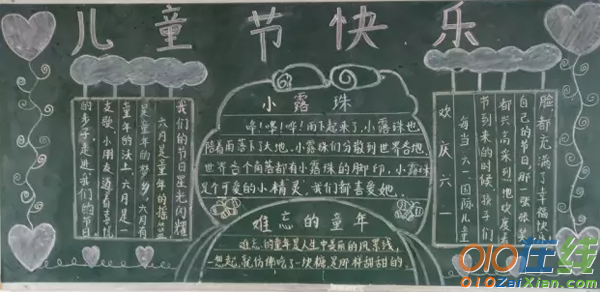 儿童节快乐
我们的节日星光闪耀
六月是童年的摇篮
是童年的梦乡，六月有
童年的沃土，六月是一
支歌，小朋友迈着喜悦
的步子走进我们的节日
小露珠
哗！哗！哗！雨下起来了，小露珠也
陪着雨落下了大地，小露珠们分散到世界各地，
世界各个角落都有小露珠的脚印，小露珠
是个可爱的小精灵，我们都喜爱她。
难忘的童年
难忘的童年是人生中美丽的风景线，
一想起，就仿佛吃了一块糖是那样甜甜的。
欢庆六一
每当六一国际儿童
节到来的时候，孩子们
都兴高采烈地欢度
自己的节日，那一张张笑
脸都充满了幸福快乐
010在线
010ZaiXian.com